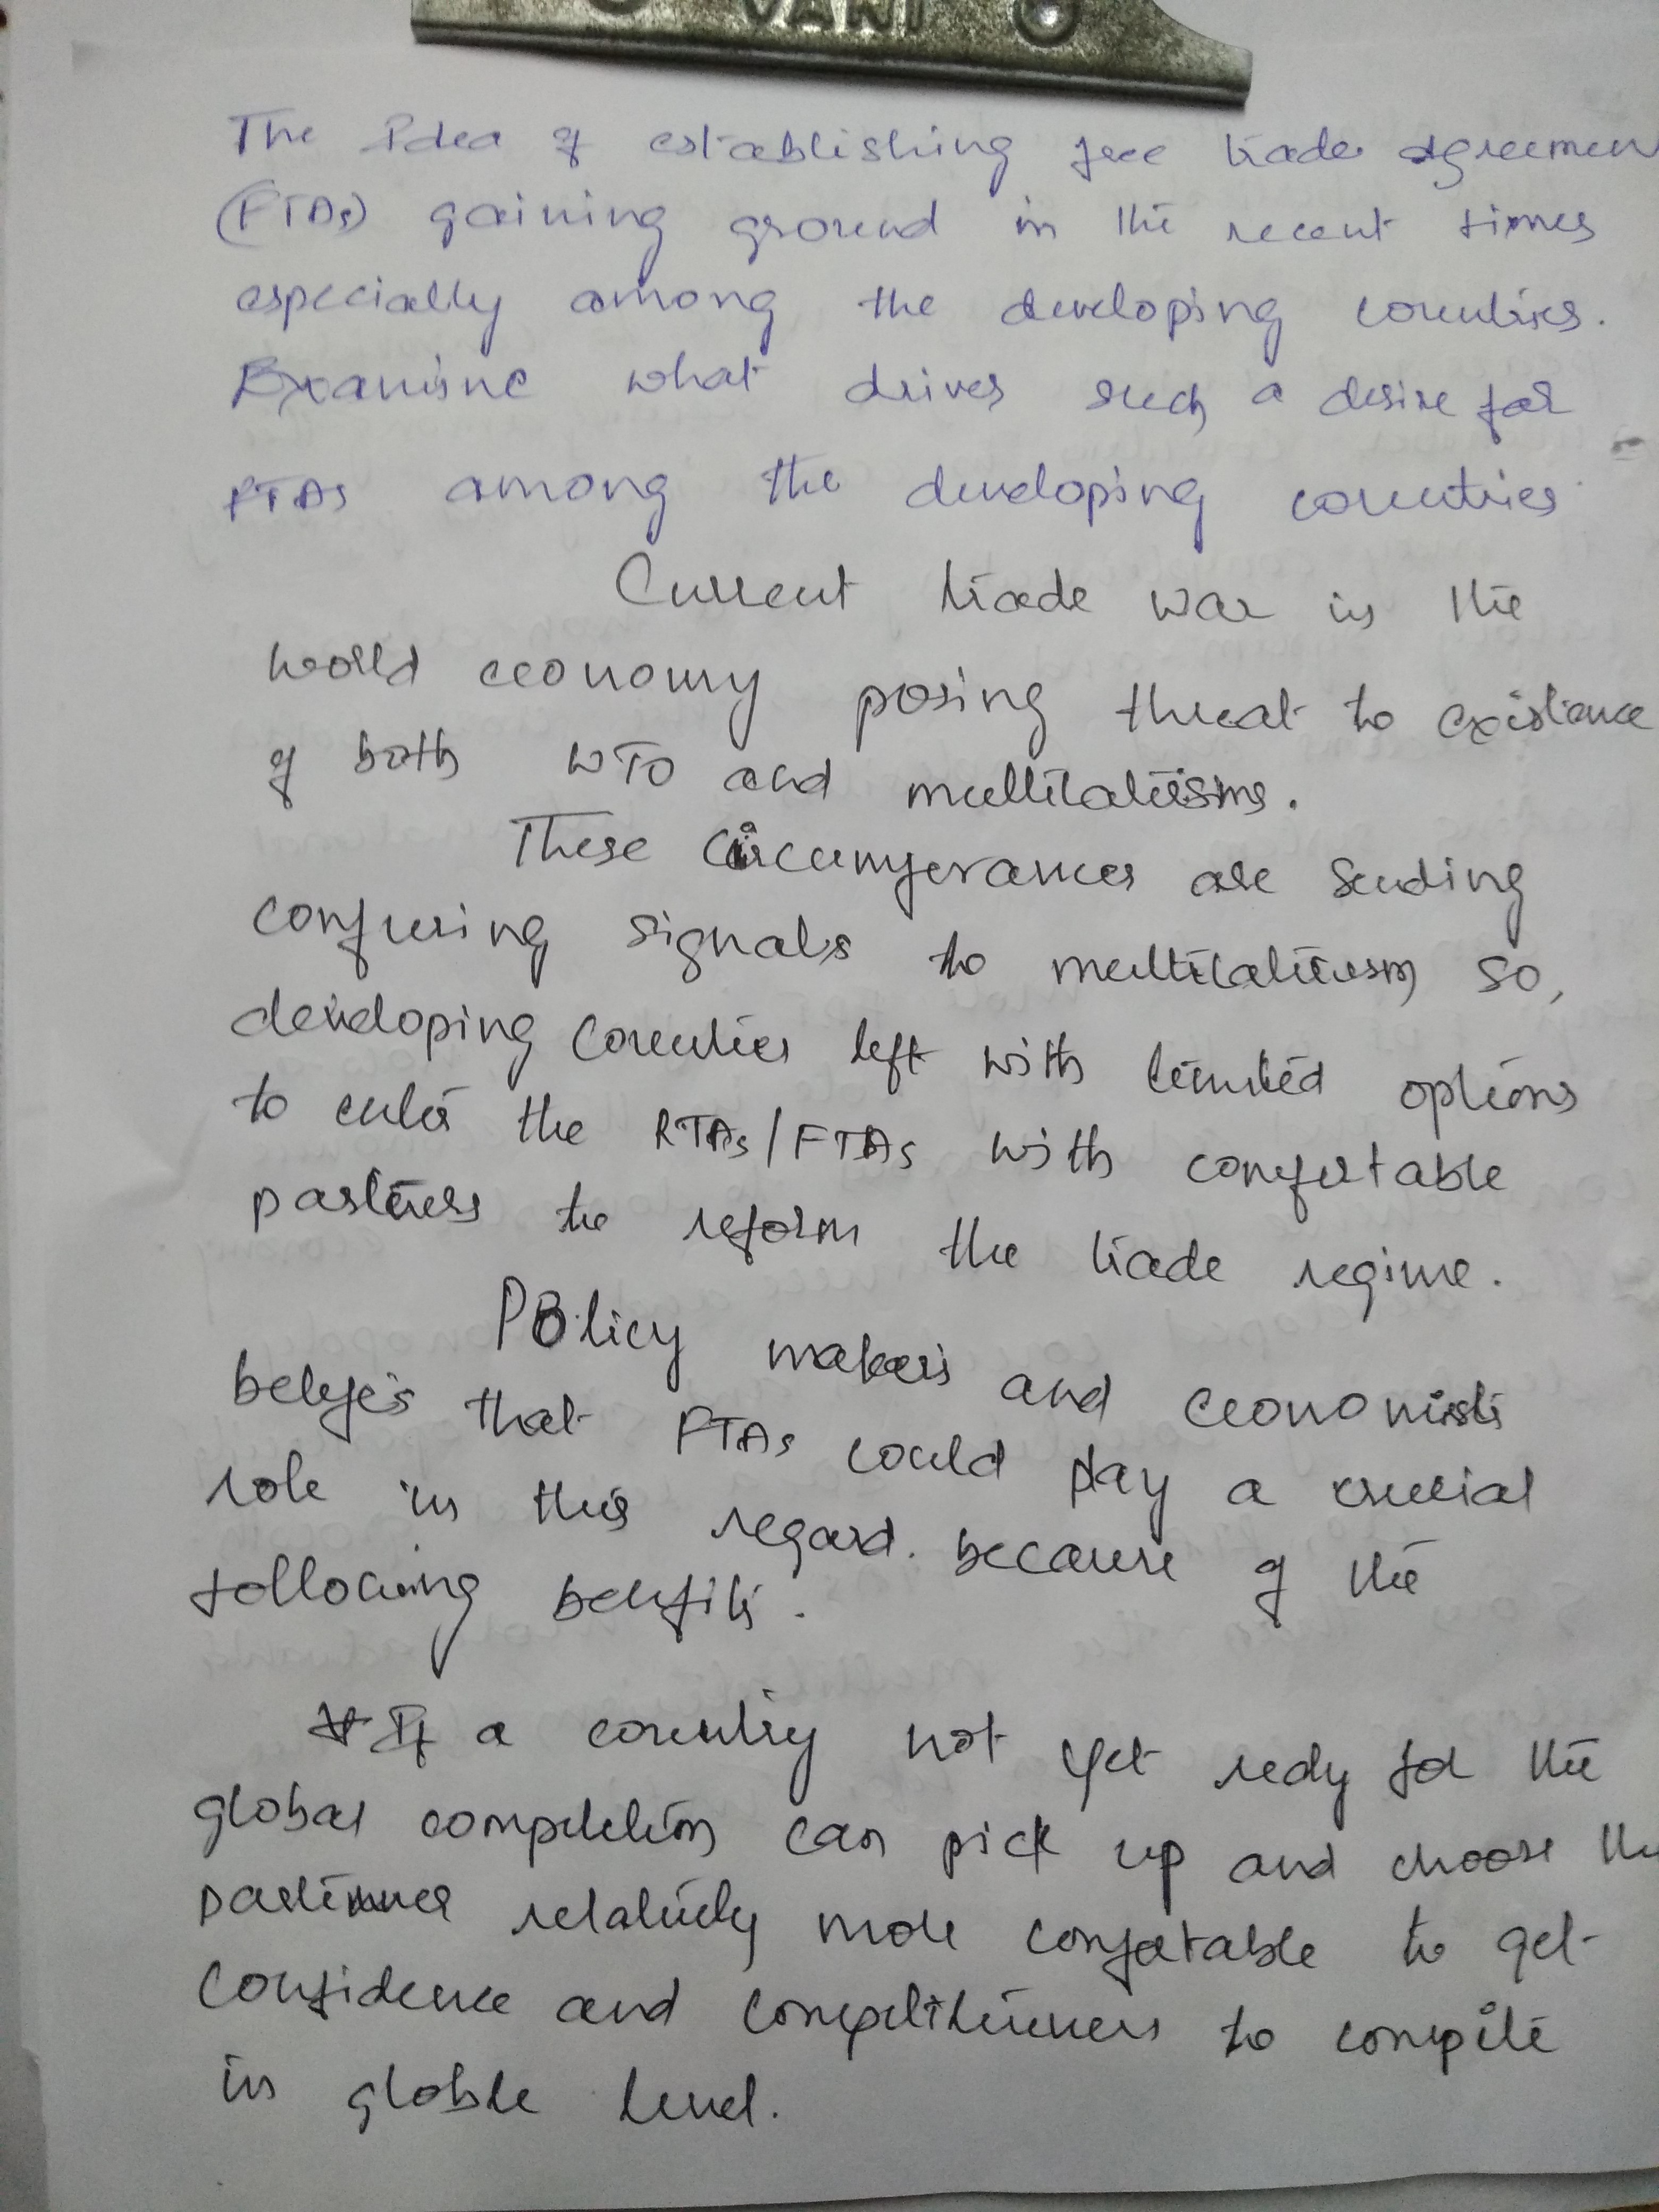 VANI
The Idea of establishing free trade agreemen
(FTAs) gaining ground in the recent times
especially among the developing countries.
Examine what drives such a desire for
FTAs among the developing countries
Current trade war in the
world economy posing threat to existence
of both WTO and multilaterisms.
These circumferances are sending
confusing signals to multilaterism, so,
developing countries left with limited options
to enter the RTAs/FTAs with comfertable
partners to reform the trade regime.
Policy makers and economists
belefes that FTAs could play a crucial
role in this regard. because of the
following benefits.
If a country not yet redy for the
global competetion can pick up and choose the
partner relatively more confortable to get
confidence and competitiveness to compete
in globle level.